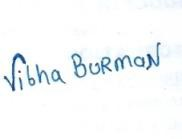 Vibha BURMAN